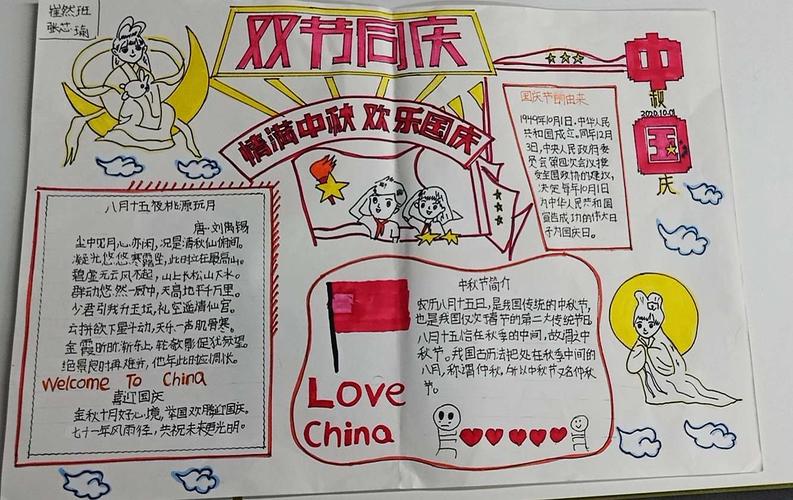 崔然班
张芯瑜
双节同庆
情满中秋 欢乐国庆
中
秋
2020.10.01
国
庆
国庆节的由来
1949年10月1日,中华人民
共和国成立。同年12月
3日,中央人民政府委
员会第四次会议接
受全国政协的建议,
决定每年10月1日
为中华人民共和国
宣告成功的伟大日
子为国庆日。
八月十五夜桃源玩月
唐·刘禹锡
尘中见月心亦闲,况是清秋仙府间。
凝光悠悠寒露坠,此时立在最高山。
碧虚无云风不起,山上长松山下水。
群动悠然一顾中,天高地平千万里。
少君引我升玉坛,礼空遥请仙官。
云拼欲下星斗动,天乐一声肌骨寒。
金霞昕昕渐东上,轮欹影促犹频望。
绝景良时再难并,他年此时应惆怅。
Welcome To China
喜迎国庆
金秋十月好心境,举国欢腾迎国庆。
七十一年风雨径,共祝未来更光明。
中秋节简介
农历八月十五日,是我国传统的中秋节,
也是我国仅次春节的第二大传统节日。
八月十五恰在秋季的中间,故谓之中
秋节。我国古历法把处在秋季中间的
八月,称谓仲秋,所以中秋节又名仲秋
节。
Love
China